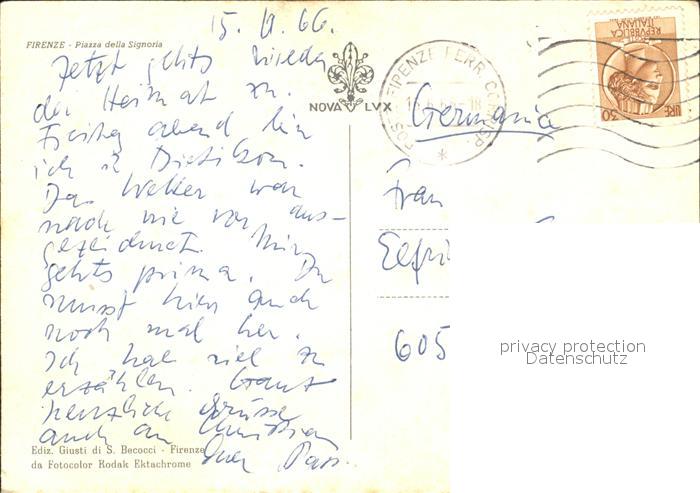 15. 6. 66.
FIRENZE - Piazza della Signoria
Jetzt gehts wieder
der Heimat zu.
Freitag abend bin
ich in Dietikon.
Das Wetter war
nach wie vor aus-
gezeichnet. Mir
gehts prima. Du
musst hier auch
noch mal her.
Ich hab viel zu
erzählen. 
herzliche Grüsse
auch an Christian
Ediz. Giusti di S. Becocci - Firenze
da Fotocolor Kodak Ektachrome
NOVA LVX
FIRENZE FERR. CORRISP.
REPVBBLICA
ITALIANA
LIRE 30
Germania
Frau
Elfri
605
privacy protection
Datenschutz